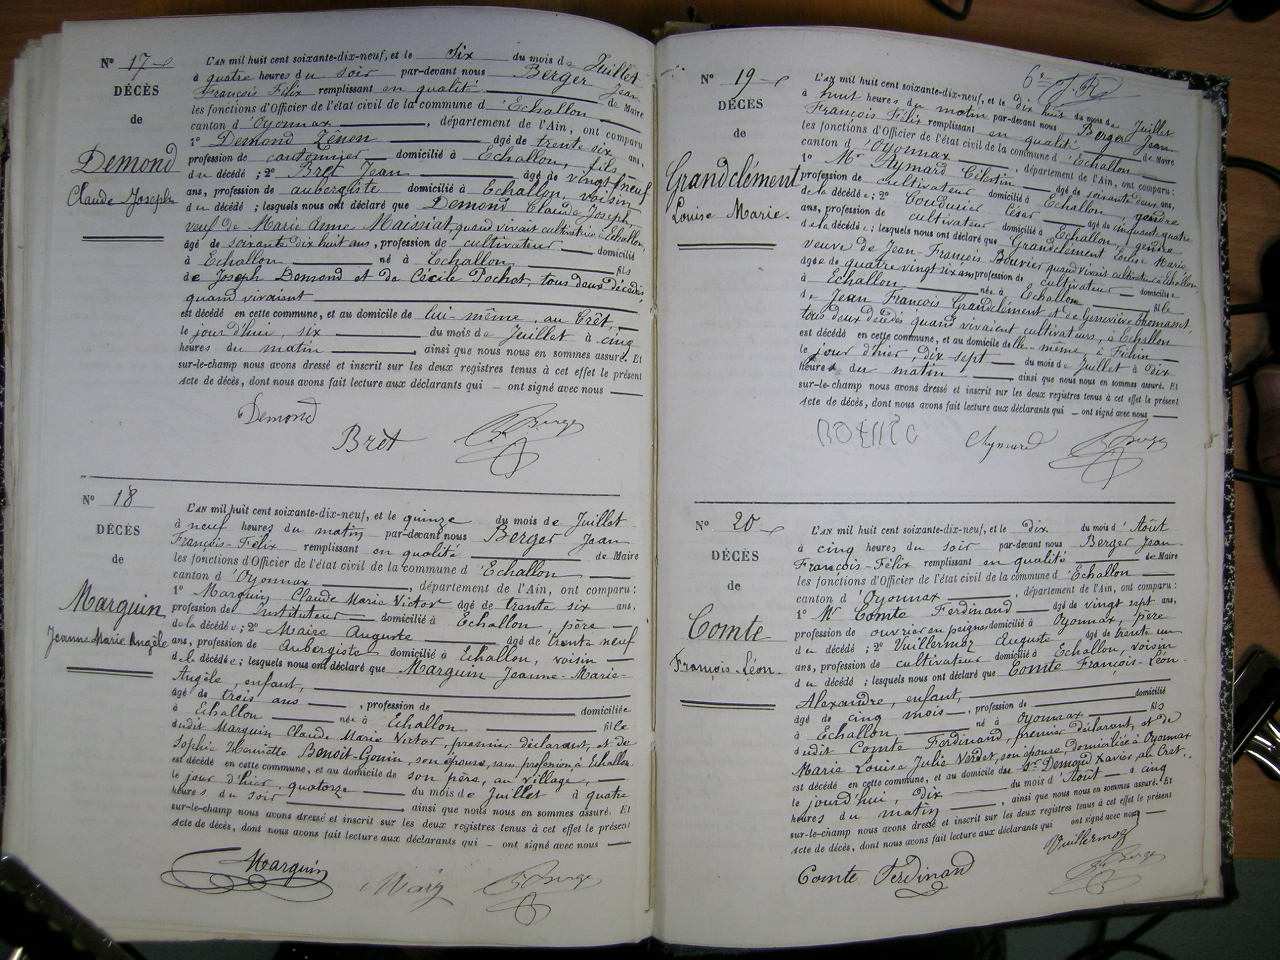 N° 17
DÉCÈS
de
Demond
Claude Joseph
L'AN mil huit cent soixante-dix-neuf, et le Six du mois de Juillet
à quatre heures du soir par-devant nous Berger Jean
François Félix remplissant en qualité de Maire
les fonctions d'Officier de l'état civil de la commune d'Echallon
canton d'Oyonnax, département de l'Ain, ont comparu
1° Demond Zénon âgé de trente six ans,
profession de cantonnier domicilié à Echallon, fils
du décédé ; 2° Bret Jean âgé de vingt neuf
ans, profession de aubergiste domicilié à Echallon, voisin
du décédé ; lesquels nous ont déclaré que Demond Claude Joseph
veuf de Marie Anne Maissiat, quand vivait cultivatrice à Echallon,
âgé de soixante dix huit ans, profession de cultivateur domicilié
à Echallon né à Echallon fils
de Joseph Demond et de Cécile Pochet, tous deux décédés,
quand vivaient
est décédé en cette commune, et au domicile de lui-même, au Crêt,
le jour d'hui, six du mois de Juillet à cinq
heures du matin, ainsi que nous nous en sommes assuré. Et
sur-le-champ nous avons dressé et inscrit sur les deux registres tenus à cet effet le présent
acte de décès, dont nous avons fait lecture aux déclarants qui – ont signé avec nous
Demond
Bret
Berger
N° 18
DÉCÈS
de
Marquin
Jeanne Marie Angèle
L'AN mil huit cent soixante-dix-neuf, et le quinze du mois de Juillet
à neuf heures du matin par-devant nous Berger Jean
François-Félix remplissant en qualité de Maire
les fonctions d'Officier de l'état civil de la commune d'Echallon
canton d'Oyonnax, département de l'Ain, ont comparu :
1° Marquin Claude Marie Victor âgé de trente six ans,
profession de Instituteur domicilié à Echallon, père
de la décédée ; 2° Maire Auguste âgé de trente neuf
ans, profession de Aubergiste domicilié à Echallon, voisin
de la décédée ; lesquels nous ont déclaré que Marquin Jeanne-Marie-
Angèle, enfant,
âgé de trois ans, profession de domiciliée
à Echallon née à Echallon fille
dudit Marquin Claude Marie Victor, premier déclarant, et de
Sophie Henriette Benoit-Gonin, son épouse, sans profession à Echallon
est décédé en cette commune, et au domicile de son père, au village,
le jour d'hier, quatorze du mois de Juillet à quatre
heures du soir, ainsi que nous nous en sommes assuré. Et
sur-le-champ nous avons dressé et inscrit sur les deux registres tenus à cet effet le présent
acte de décès, dont nous avons fait lecture aux déclarants qui – ont signé avec nous
Marquin
Berger
N° 19
DÉCÈS
de
Grandclément
Louise Marie.
L'AN mil huit cent soixante-dix-neuf, et le dix huit du mois de Juillet
à huit heures du matin par-devant nous Berger Jean
François Félix remplissant en qualité de Maire
les fonctions d'Officier de l'état civil de la commune d'Echallon
canton d'Oyonnax, département de l'Ain, ont comparu :
1° Mr Aymard Célestin âgé de soixante deux ans,
profession de cultivateur domicilié à Echallon, gendre
de la décédée ; 2° César âgé de cinquante quatre
ans, profession de cultivateur domicilié à Echallon, gendre
de la décédée ; lesquels nous ont déclaré que Grandclément Louise Marie
veuve de Jean-François Bouvier quand vivait cultivateur à Echallon,
âgée de quatre vingt six ans profession de cultivateur domiciliée
à Echallon née à Echallon fille
de Jean François Grandclément et de Geneviève Thomasset,
tous deux décédés quand vivaient cultivateurs, à Echallon
est décédé en cette commune, et au domicile de elle-même, à
le jour d'hier, dix sept du mois de Juillet à dix
heures du matin ainsi que nous nous en sommes assuré. Et
sur-le-champ nous avons dressé et inscrit sur les deux registres tenus à cet effet le présent
acte de décès, dont nous avons fait lecture aux déclarants qui – ont signé avec nous
Aymard
Berger
N° 20
DÉCÈS
de
Comte
François-Léon.
L'AN mil huit cent soixante-dix-neuf, et le dix du mois d'Août
à cinq heures du soir par-devant nous Berger Jean
François-Félix remplissant en qualité de Maire
les fonctions d'Officier de l'état civil de la commune d'Echallon
canton d'Oyonnax, département de l'Ain, ont comparu :
1° Mr Comte Ferdinand âgé de vingt sept ans,
profession de ouvrier en peignes domicilié à Oyonnax, père
du décédé ; 2° Vuillermoz Auguste âgé de trente un
ans, profession de cultivateur domicilié à Echallon, voisin
du décédé ; lesquels nous ont déclaré que Comte François-Léon-
Alexandre, enfant,
âgé de cinq mois, profession de domicilié
à Echallon né à Oyonnax fils
dudit Comte Ferdinand, premier déclarant, et de
Marie Louise Julie Verdet, son épouse Domiciliée à Oyonnax
est décédé en cette commune, et au domicile de Mr Demond Xavier, au Cret.
le jourd'hui, dix du mois d'Août à cinq
heures du matin, ainsi que nous nous en sommes assuré. Et
sur-le-champ nous avons dressé et inscrit sur les deux registres tenus à cet effet le présent
acte de décès, dont nous avons fait lecture aux déclarants qui ont signé avec nous
Vuillermoz
Comte Ferdinand
Berger